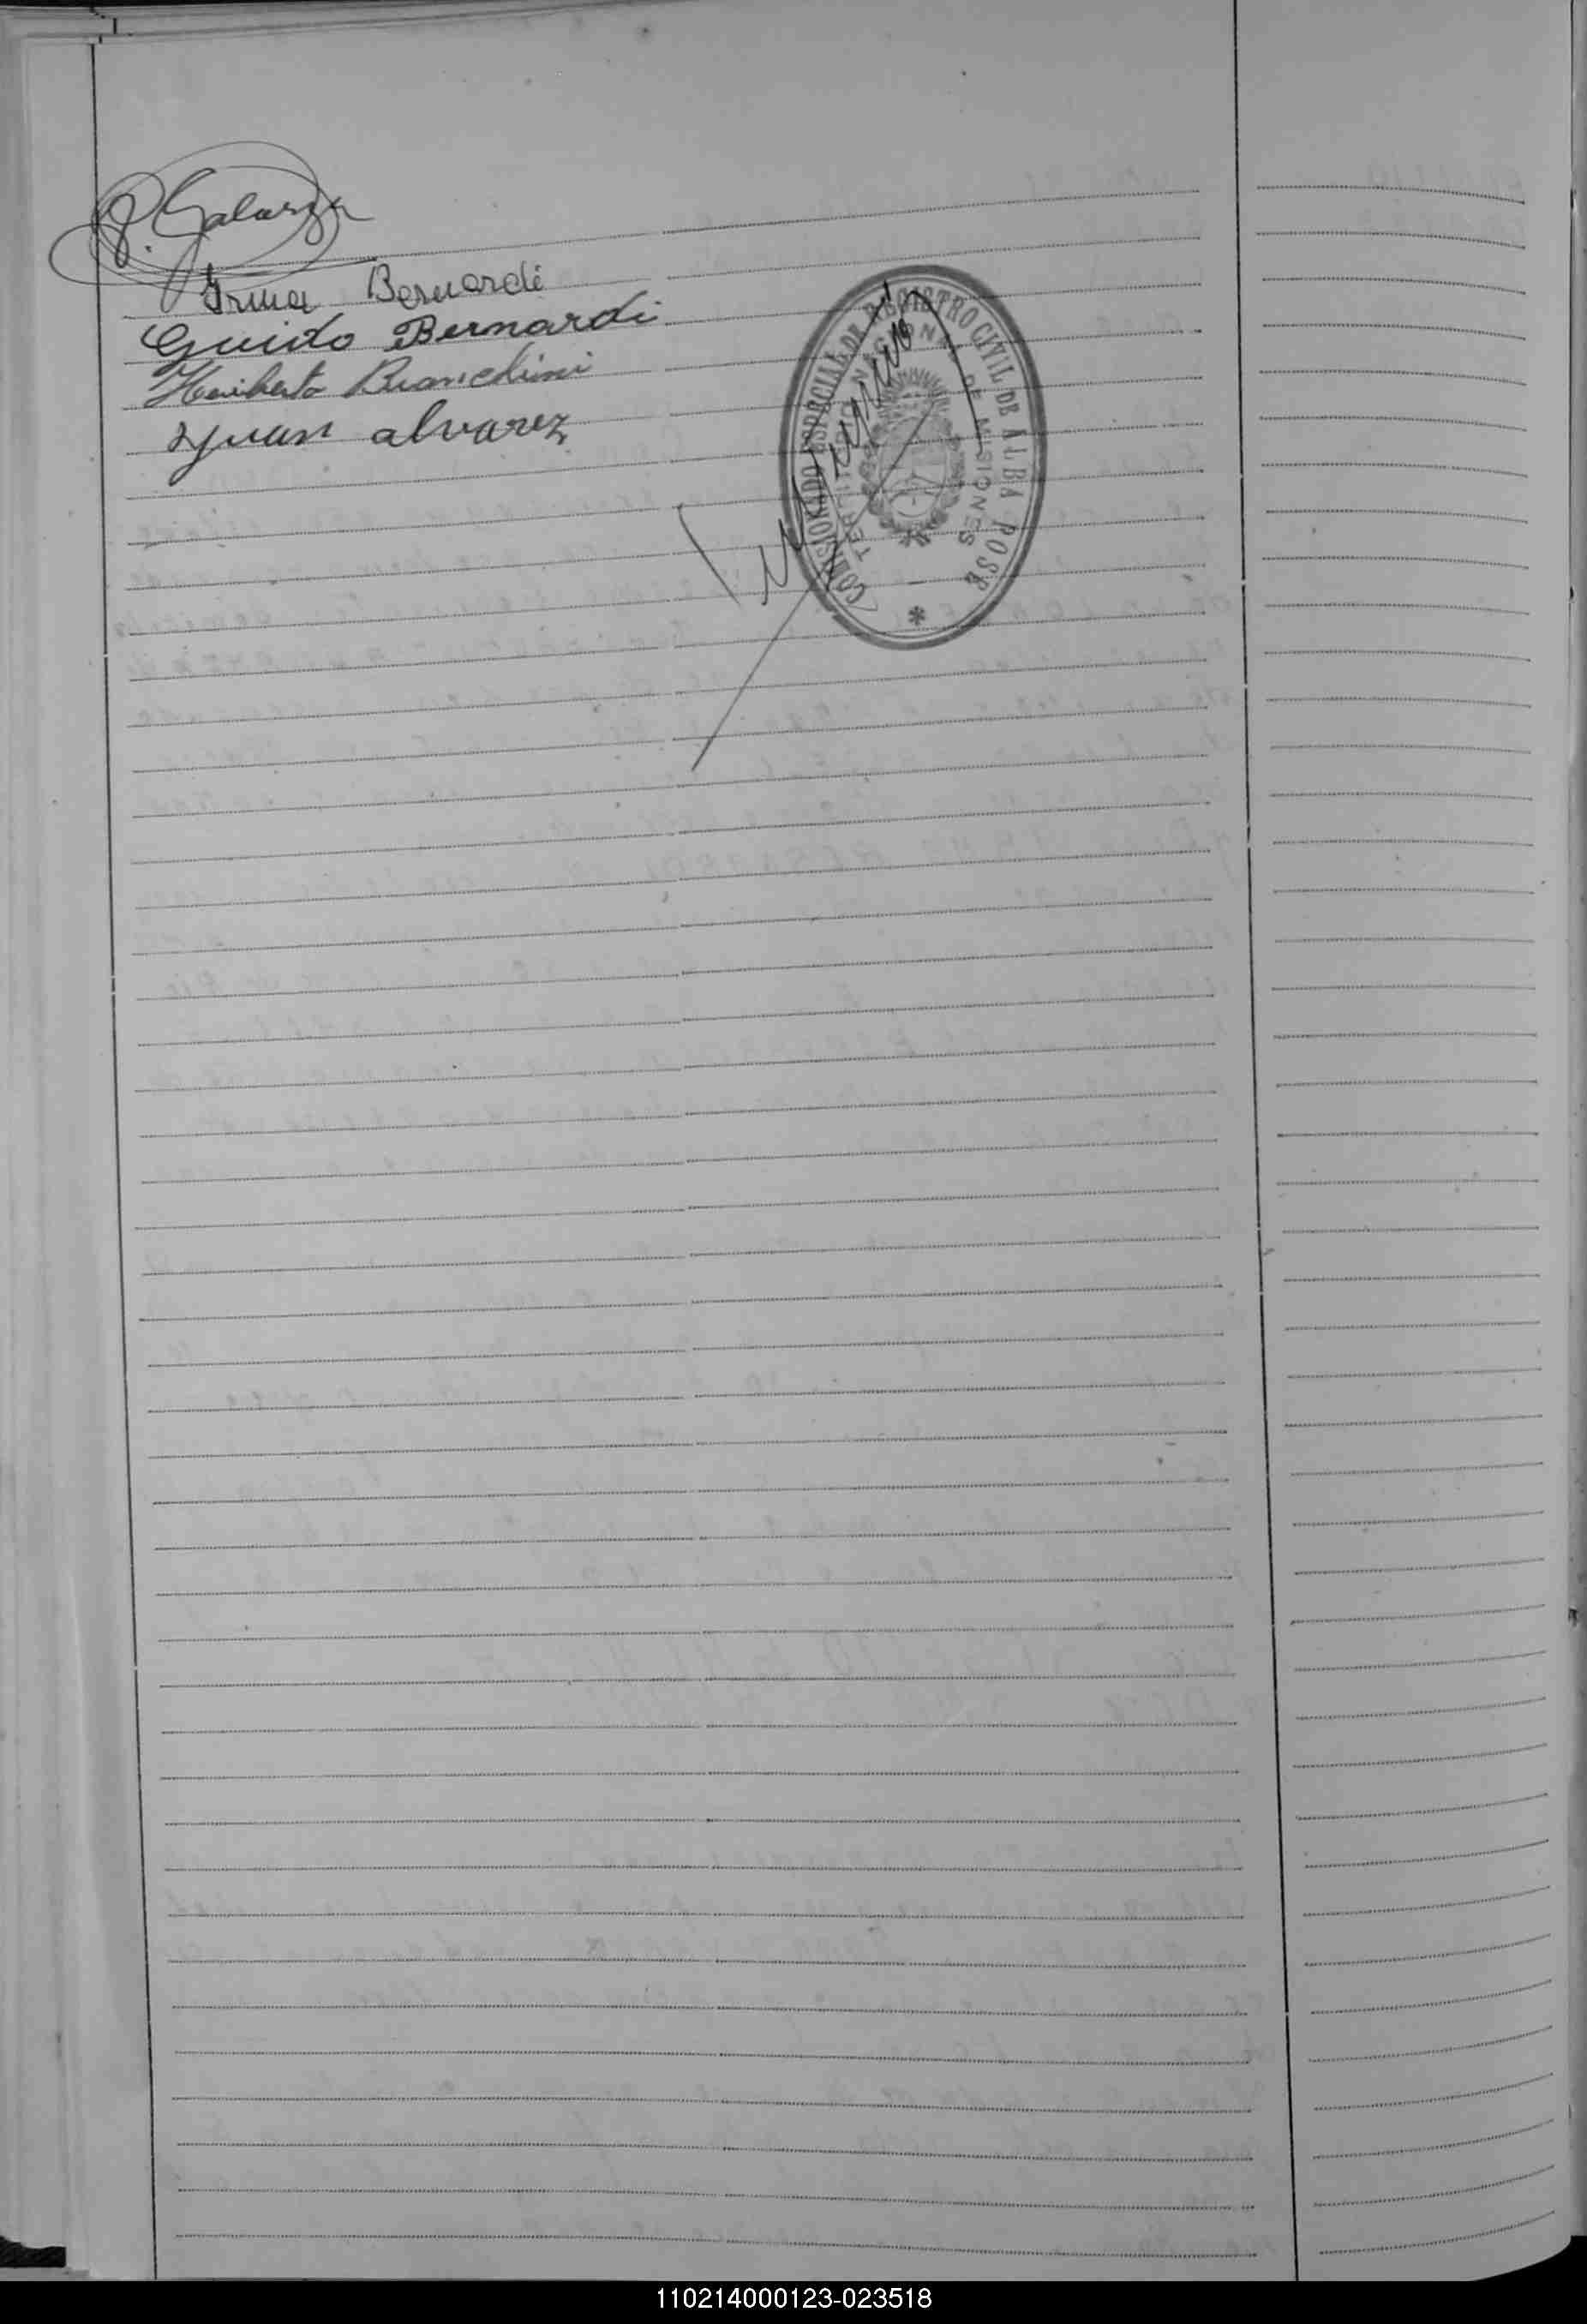 P. Galarza
Irma Bernardi
Guido Bernardi
Heriberto Bianchini
Juan alvarez
COMISIONADO ESPECIAL DE REGISTRO CIVIL DE ALBA POSE
TERRITORIO NACIONAL DE MISIONES
110214000123-023518